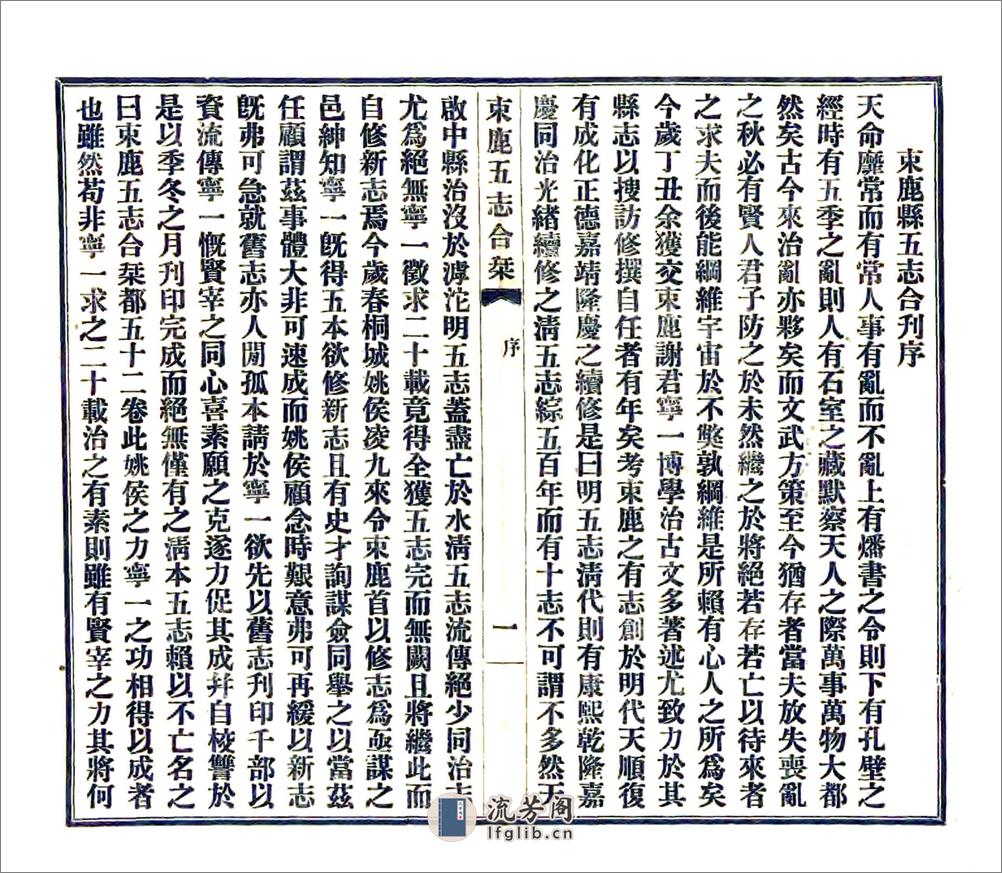 束鹿縣五志合刊序
天命靡常而有常人事有亂而不亂上有燔書之令則下有孔壁之
經時有五季之亂則人有石室之藏默察天人之際萬事萬物大都
然矣古今來治亂亦夥矣而文武方策至今猶存者當夫放失喪亂
之秋必有賢人君子防之於未然繼之於將絕若存若亡以待來者
之求夫而後能綱維宇宙於不獘孰綱維是所賴有心人之所爲矣
今歲丁丑余獲交束鹿謝君寧一博學治古文多著述尤致力於其
縣志以搜訪修撰自任者有年矣考束鹿之有志創於明代天順復
有成化正德嘉靖隆慶之續修是曰明五志淸代則有康熙乾隆嘉
慶同治光緒續修之淸五志綜五百年而有十志不可謂不多然天
束鹿五志合栞
序
一
啟中縣治沒於滹沱明五志蓋盡亡於水淸五志流傳絕少同治志
尤爲絕無寧一徵求二十載竟得全獲五志完而無闕且將繼此而
自修新志焉今歲春桐城姚侯凌九來令束鹿首以修志爲亟謀之
邑紳知寧一旣得五本欲修新志且有史才詢謀僉同舉之以當茲
任顧謂茲事體大非可速成而姚侯顧念時艱意弗可再緩以新志
旣弗可急就舊志亦人閒孤本請於寧一欲先以舊志刊印千部以
資流傳寧一慨賢宰之同心喜素願之克遂力促其成幷自校讐於
是以季冬之月刊印完成而絕無僅有之淸本五志賴以不亡名之
曰束鹿五志合栞都五十二卷此姚侯之力寧一之功相得以成者
也雖然苟非寧一求之二十載治之有素則雖有賢宰之力其將何
流芳阁
lfglib.cn